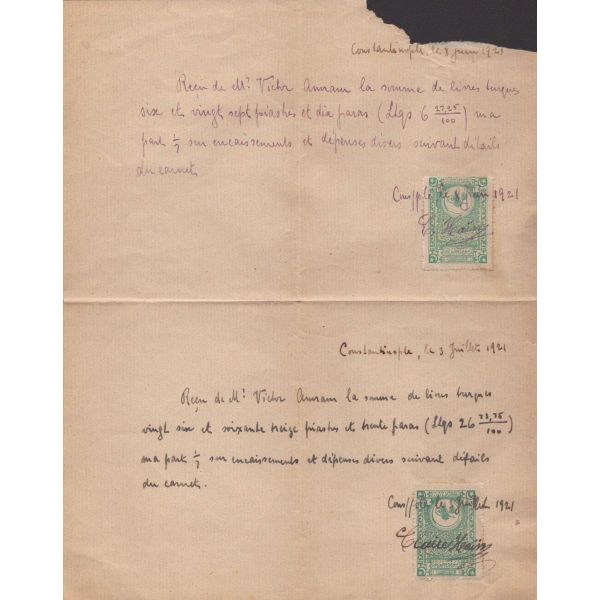 Constantinople, le 8 juin 1921
Reçu de Mr. Victor Amram la somme de livres turques
six et vingt sept piastres et dix paras (Ltqs 6 27,25/100) ma
part 1/7 sur encaissements et dépenses divers suivant détails
du carnet
Consple le 8 juin 1921
Constantinople, le 3 Juillet 1921
Reçu de Mr. Victor Amram la somme de livres turques
vingt six et soixante treize piastres et trente paras (Ltqs 26 73,75/100)
ma part 1/7 sur encaissements et dépenses divers suivant détails
du carnet.
Consple le 3 Juillet 1921
Claire Haïm